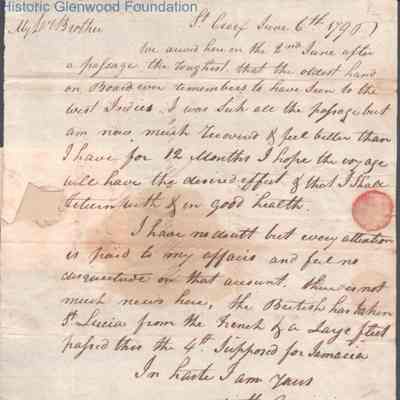 Historic Glenwood Foundation
St Croix June 6th 1796
My Dr Brother
We arrived here on the 2nd June after
a passage the toughest that the oldest hand
on Board ever remembers to have seen to the
west Indies. I was Sick all the passage but
am now much Recovered & feel better than
I have for 12 Months I hope the voyage
will have the desired effect & that I shall
Return with & in good health.
I have no doubt but every attention
is paid to my affairs and feel no
disquietude on that account. there is not
much news here, the British has taken
St. Lucia from the French & a Large fleet
passed this the 4th. Supposed for Jamaica
In haste I am yours